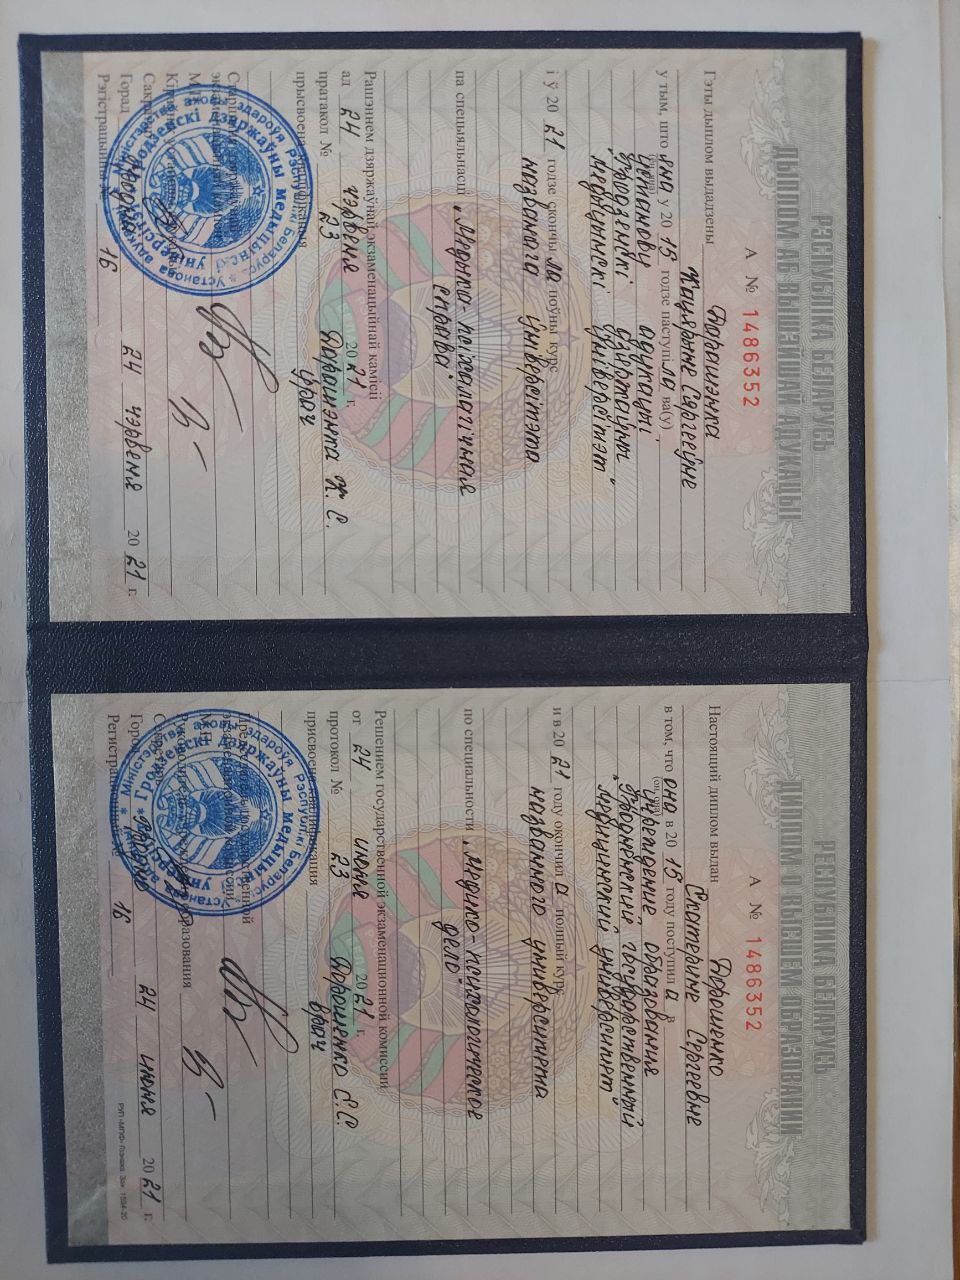 РЭСПУБЛІКА БЕЛАРУСЬ
ДЫПЛОМ АБ ВЫШЭЙШАЙ АДУКАЦЫІ
А № 1486352
Гэты дыплом выдадзены Дарашэнка
Кацярыне Сяргееўне
у тым, што яна у 20 15 годзе паступіла ва(у)
(ён, яна)
Установу адукацыі
"Гродзенскі дзяржаўны
медыцынскі ўніверсітэт"
і ў 20 21 годзе скончыла поўны курс
названага ўніверсітэта
па спецыяльнасці "Медыка-псіхалагічная
справа"
Рашэннем дзяржаўнай экзаменацыйнай камісіі
ад 24 чэрвеня 20 21 г.
пратакол № 23 Дарашэнка К. С.
прысвоена кваліфікацыя
урач
Горад Гродна 24 чэрвеня 20 21 г.
Рэгістрацыйны № 16
Міністэрства аховы здароўя Рэспублікі Беларусь * Установа адукацыі
Гродзенскі дзяржаўны медыцынскі ўніверсітэт
РЕСПУБЛИКА БЕЛАРУСЬ
ДИПЛОМ О ВЫСШЕМ ОБРАЗОВАНИИ
А № 1486352
Настоящий диплом выдан Дорошенко
Екатерине Сергеевне
в том, что она в 20 15 году поступила в
(он, она)
Учреждение образования
"Гродненский государственный
медицинский университет"
и в 20 21 году окончила полный курс
названного университета
по специальности "Медико-психологическое
дело"
Решением государственной экзаменационной комиссии
от 24 июня 20 21 г.
протокол № 23 Дорошенко Е.С.
присвоена квалификация
врач
Город Гродно 24 июня 20 21 г.
Регистрационный № 16
Міністэрства аховы здароўя Рэспублікі Беларусь * Установа
Гродзенскі дзяржаўны медыцынскі